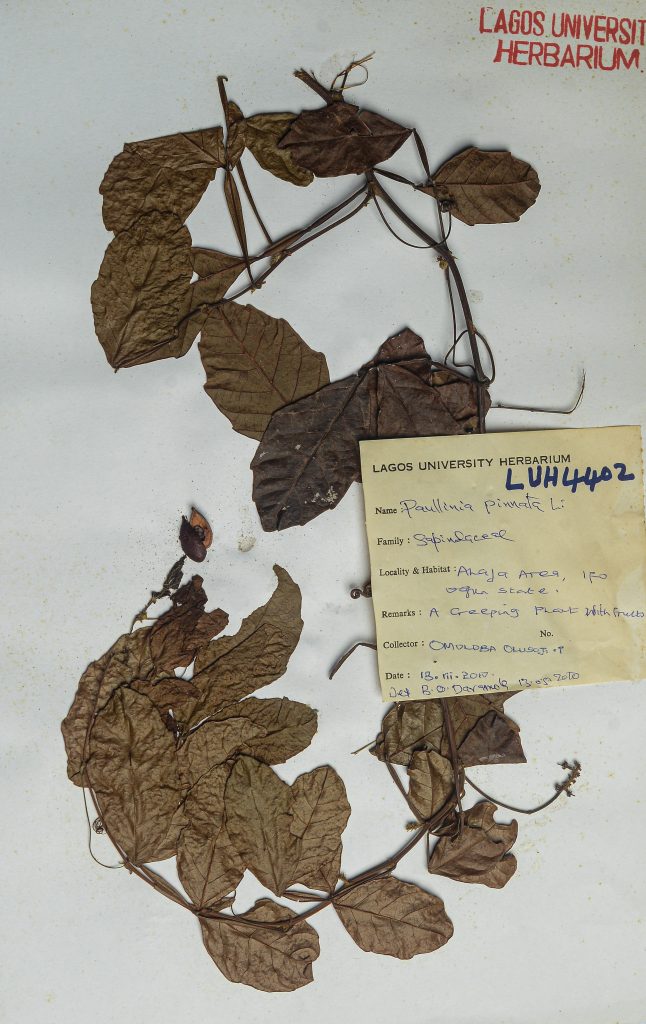 LAGOS UNIVERSIT
HERBARIUM
LAGOS UNIVERSITY HERBARIUM
LUH4402
Name: Paullinia pinnata Li
Family: Sapindaceae
Locality & Habitat: Area, Ifo
Ogun State.
Remarks: A Creeping Plant With fruits
No.
Collector: OMOLOBA
Date: 13.iii.2010.
Det B. O. 2010